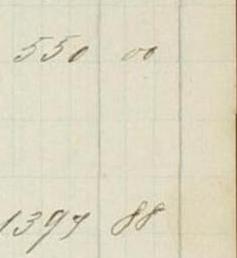 550 00
1397 88